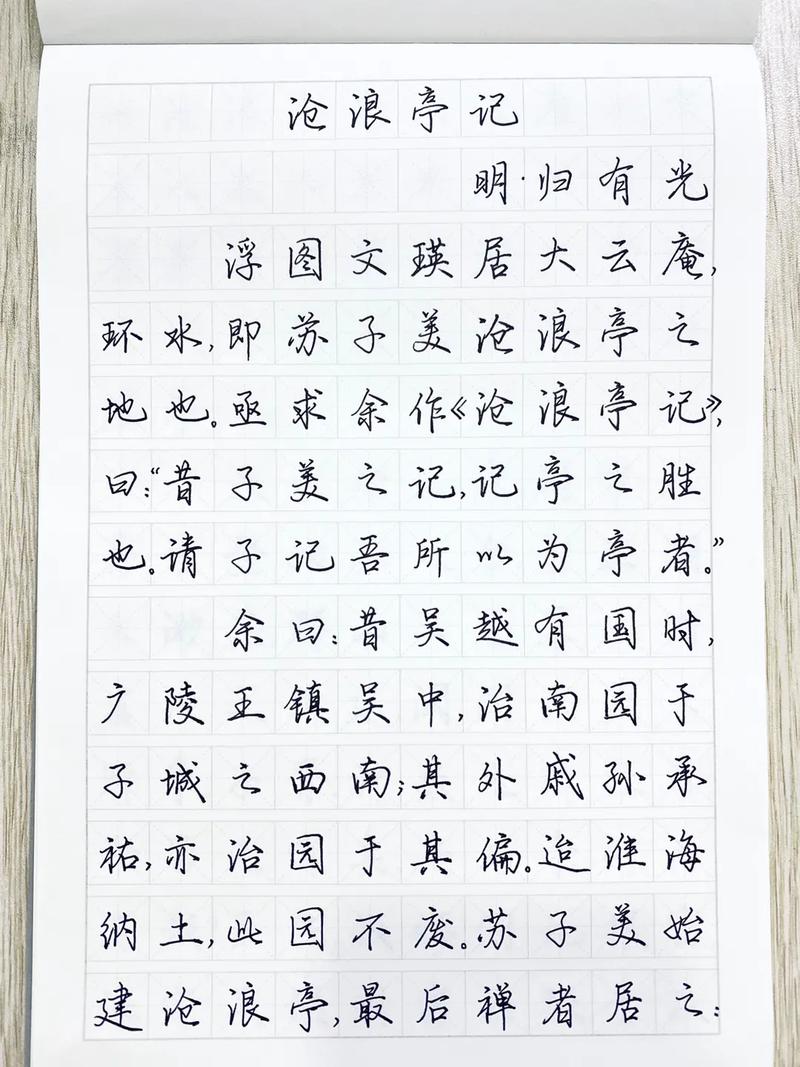 沧浪亭记
明·归有光
浮图文瑛居大云庵,
环水,即苏子美沧浪亭之
地也。亟求余作《沧浪亭记》,
曰:“昔子美之记,记亭之胜
也。请子记吾所以为亭者。”
余曰:昔吴越有国时,
广陵王镇吴中,治南园于
子城之西南;其外戚孙承
祐,亦治园于其偏。迨淮海
纳土,此园不废。苏子美始
建沧浪亭,最后禅者居之: